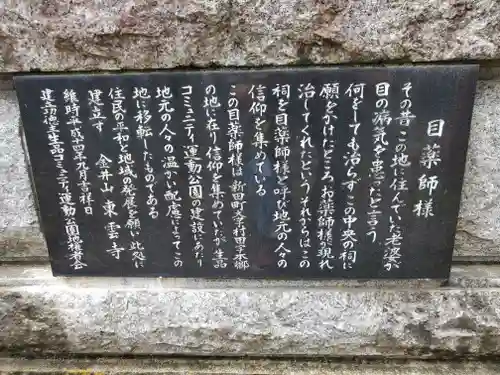 目薬師様
その昔 この地に住んでいた老婆が
目の病気を患ったと言う
何をしても治らず この中央の祠に
願をかけたところ お薬師様が現れ
治してくれたという それからはこの
祠を目薬師様と呼び 地元の人々の
信仰を集めている
この目薬師様は 新田町大字村田字本郷
の地に在り 信仰を集めていたが 生品
コミュニティ運動公園の建設にあたり
地元の人々の温かい配慮によってこの
地に移転したものである
住民の平和と地域の発展を願い 此処に
建立す 金井山 東雲寺
維時平成十四年九月吉日
建立功徳主 生品コミュニティ運動公園地権者会